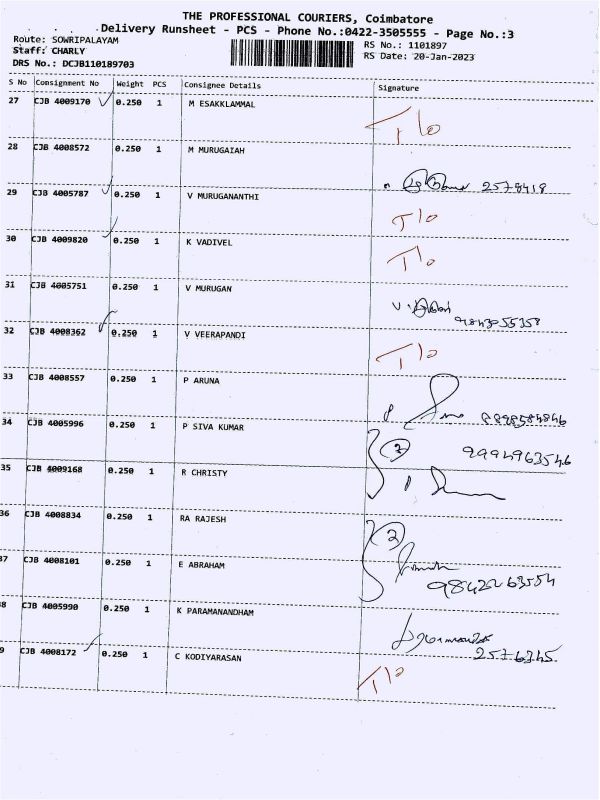 THE PROFESSIONAL COURIERS, Coimbatore
Delivery Runsheet - PCS - Phone No.:0422-3505555 - Page No.:3
Route: SOWRIPALAYAM
RS No.: 1101897
Staff: CHARLY
RS Date: 20-Jan-2023
DRS No.: DCJB110189703
S No Consignment No Weight PCS Consignee Details Signature
27 CJB 4009170 0.250 1 M ESAKKLAMMAL T/o
28 CJB 4008572 0.250 1 M MURUGAIAH 2578418
29 CJB 4005787 0.250 1 V MURUGANANTHI T/o
30 CJB 4009820 0.250 1 K VADIVEL T/o
31 CJB 4005751 0.250 1 V MURUGAN
32 CJB 4008362 0.250 1 V VEERAPANDI T/o
33 CJB 4008557 0.250 1 P ARUNA
34 CJB 4005996 0.250 1 P SIVA KUMAR 2 9994963546
35 CJB 4009168 0.250 1 R CHRISTY
36 CJB 4008834 0.250 1 RA RAJESH 2
37 CJB 4008101 0.250 1 E ABRAHAM 9842263554
38 CJB 4005990 0.250 1 K PARAMANANDHAM 2576345
9 CJB 4008172 0.250 1 C KODIYARASAN T/o